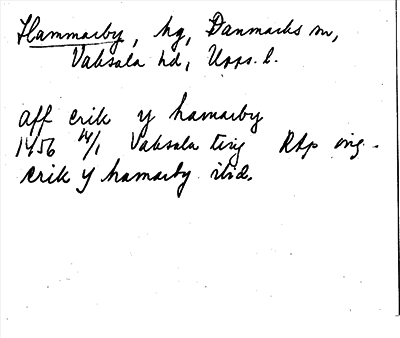 Hammarby, hg, Danmarks sn,
Vaksala hd, Upps. l.
aff erik y hamarby
1456 14/1 Vaksala ting Rap ing.
erik y hamarby ibid.